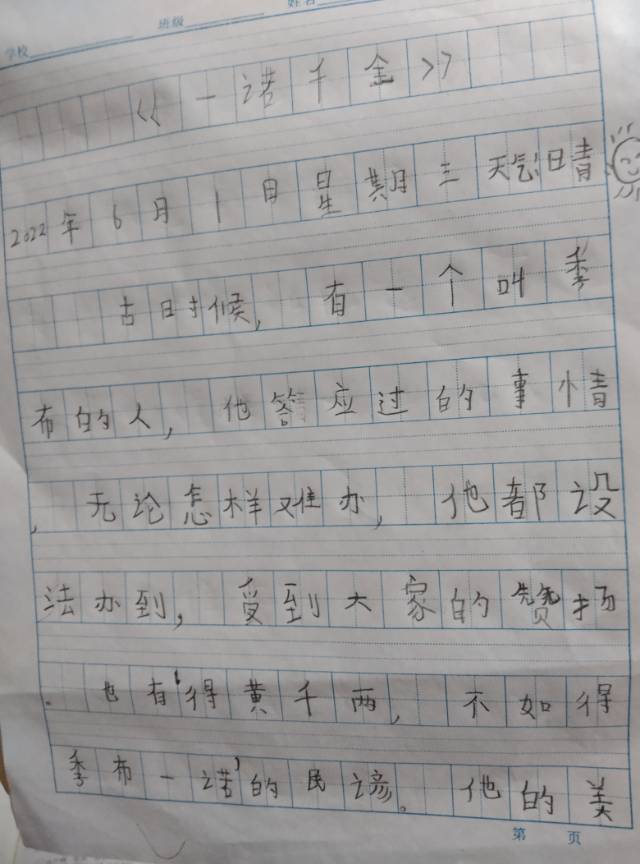 学校 班级 姓名
《一诺千金》
2022年6月1日星期三天气日晴
古时候,有一个叫季
布的人,他答应过的事情
,无论怎样难办,他都设
法办到,受到大家的赞扬
.也有'得黄千两,不如得
季布一诺'的民谚。他的美
第 页